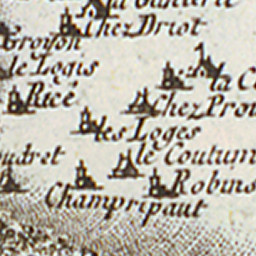 Chez Driot
Groyson
le Logis
la Co
Ricé
Chez Prou
les Loges
oudret
le Coutum
Robins
Champripaut